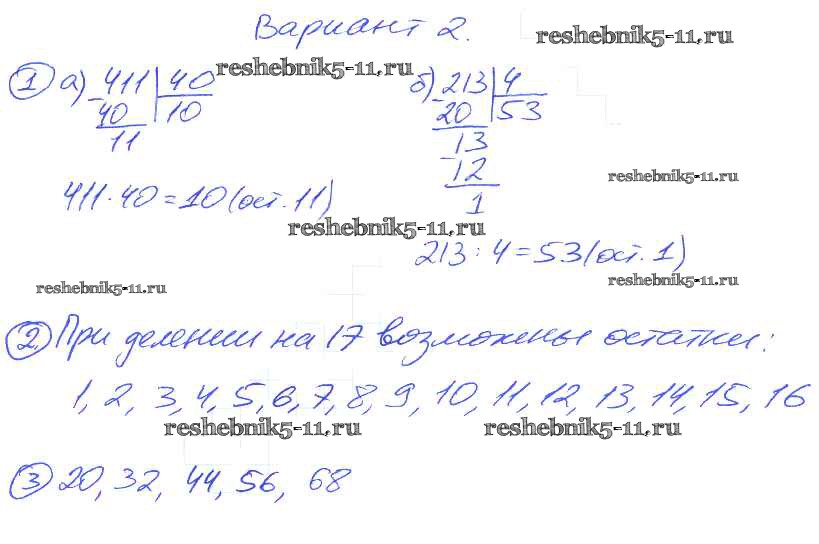 Вариант 2.
reshebnik5-11.ru
reshebnik5-11.ru
1 а) 411 40
40 10
11
411·40=10(ост. 11)
б) 213 4
20 53
13
12
1
reshebnik5-11.ru
reshebnik5-11.ru
213:4=53(ост. 1)
reshebnik5-11.ru
reshebnik5-11.ru
2. При делении на 17 возможны остатки:
1, 2, 3, 4, 5, 6, 7, 8, 9, 10, 11, 12, 13, 14, 15, 16
reshebnik5-11.ru
reshebnik5-11.ru
3 20, 32, 44, 56, 68